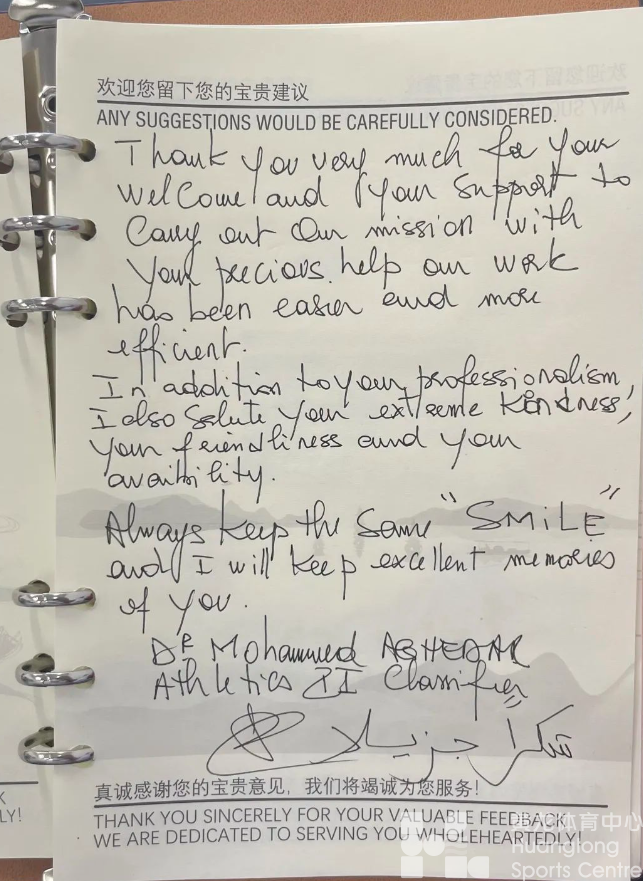 欢迎您留下您的宝贵建议
ANY SUGGESTIONS WOULD BE CAREFULLY CONSIDERED.
Thank you very much for your
welcome and your support to
carry out our mission with
your precious help our work
has been easier and more
efficient.
In addition to your professionalism,
I also salute your extreme kindness,
your friendliness and your
avaibility.
Always keep the same "SMILE"
and I will keep excellent memories
of you.
DR Mohammed
Athletics PI Classifier
شكراً جزيلا
真诚感谢您的宝贵意见，我们将竭诚为您服务!
THANK YOU SINCERELY FOR YOUR VALUABLE FEEDBACK,
WE ARE DEDICATED TO SERVING YOU WHOLEHEARTEDLY!
LY!
黄龙体育中心
Huanglong
Sports Centre